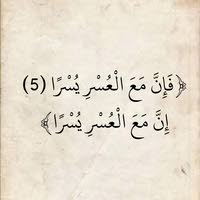 ﴿فَإِنَّ مَعَ الْعُسْرِ يُسْرًا (5)
إِنَّ مَعَ الْعُسْرِ يُسْرًا﴾